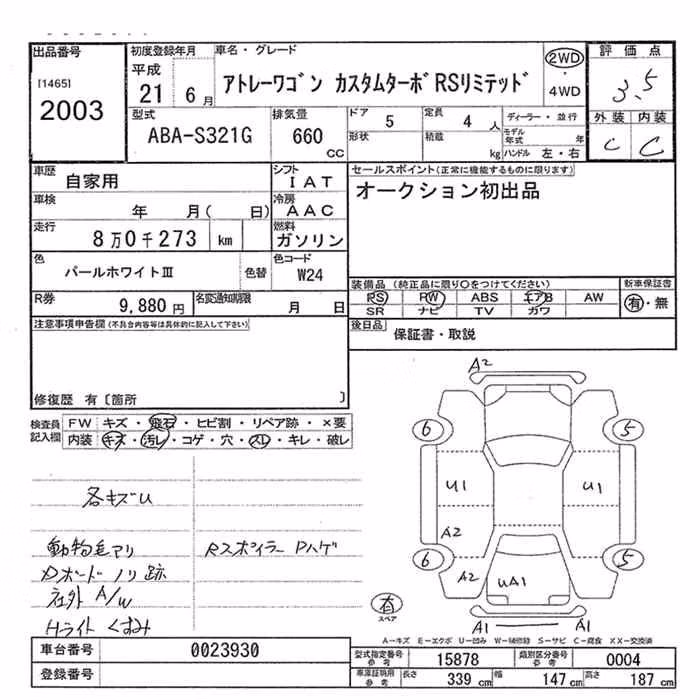 出品番号
[1465]
2003
初度登録年月
平成
21 6月
車名・グレード
アトレーワゴン カスタムターボRSリミテッド
2WD
・
4WD
評価点
3.5
外装 内装
C C
型式
ABA-S321G
排気量
660
CC
ドア
5
定員
4 人
形状
積載
kg
ディーラー・並行
モデル年式 年
ハンドル 左・右
車歴
自家用
シフト
IAT
車検
年 月( 日)
冷房
AAC
走行
8万0千273 km
燃料
ガソリン
色
パールホワイトⅢ
色替
色コード
W24
R券
9,880 円
名変通知期限
月 日
セールスポイント(正常に機能するものに限ります)
オークション初出品
装備品 (純正品に限り○をつけてください)
PS PW ABS エアB AW
SR ナビ TV カワ
新車保証書
有・無
後日品
保証書・取説
注意事項申告欄(不具合内容等は具体的に記入して下さい)
修復歴 有〔箇所 〕
検査員記入欄
FW キズ・飛石・ヒビ割・リペア跡・×要
内装 キズ・汚レ・コゲ・穴・スレ・キレ・破レ
各キズU
動物毛アリ
Rスポイラー Pハゲ
Dボード ノリ跡
社外 A/W
Hライト くすみ
A2
6
5
U1
U1
A2
6
5
A2
UA1
有
スペア
A1
A1
A-キズ E-エクボ U-凹み W-補修跡 S-サビ C-腐食 XX-交換済
車台番号
0023930
登録番号
型式指定番号
参考
15878
類別区分番号
参考
0004
車庫証明用
参考
長さ 339 cm 幅 147 cm 高さ 187 cm